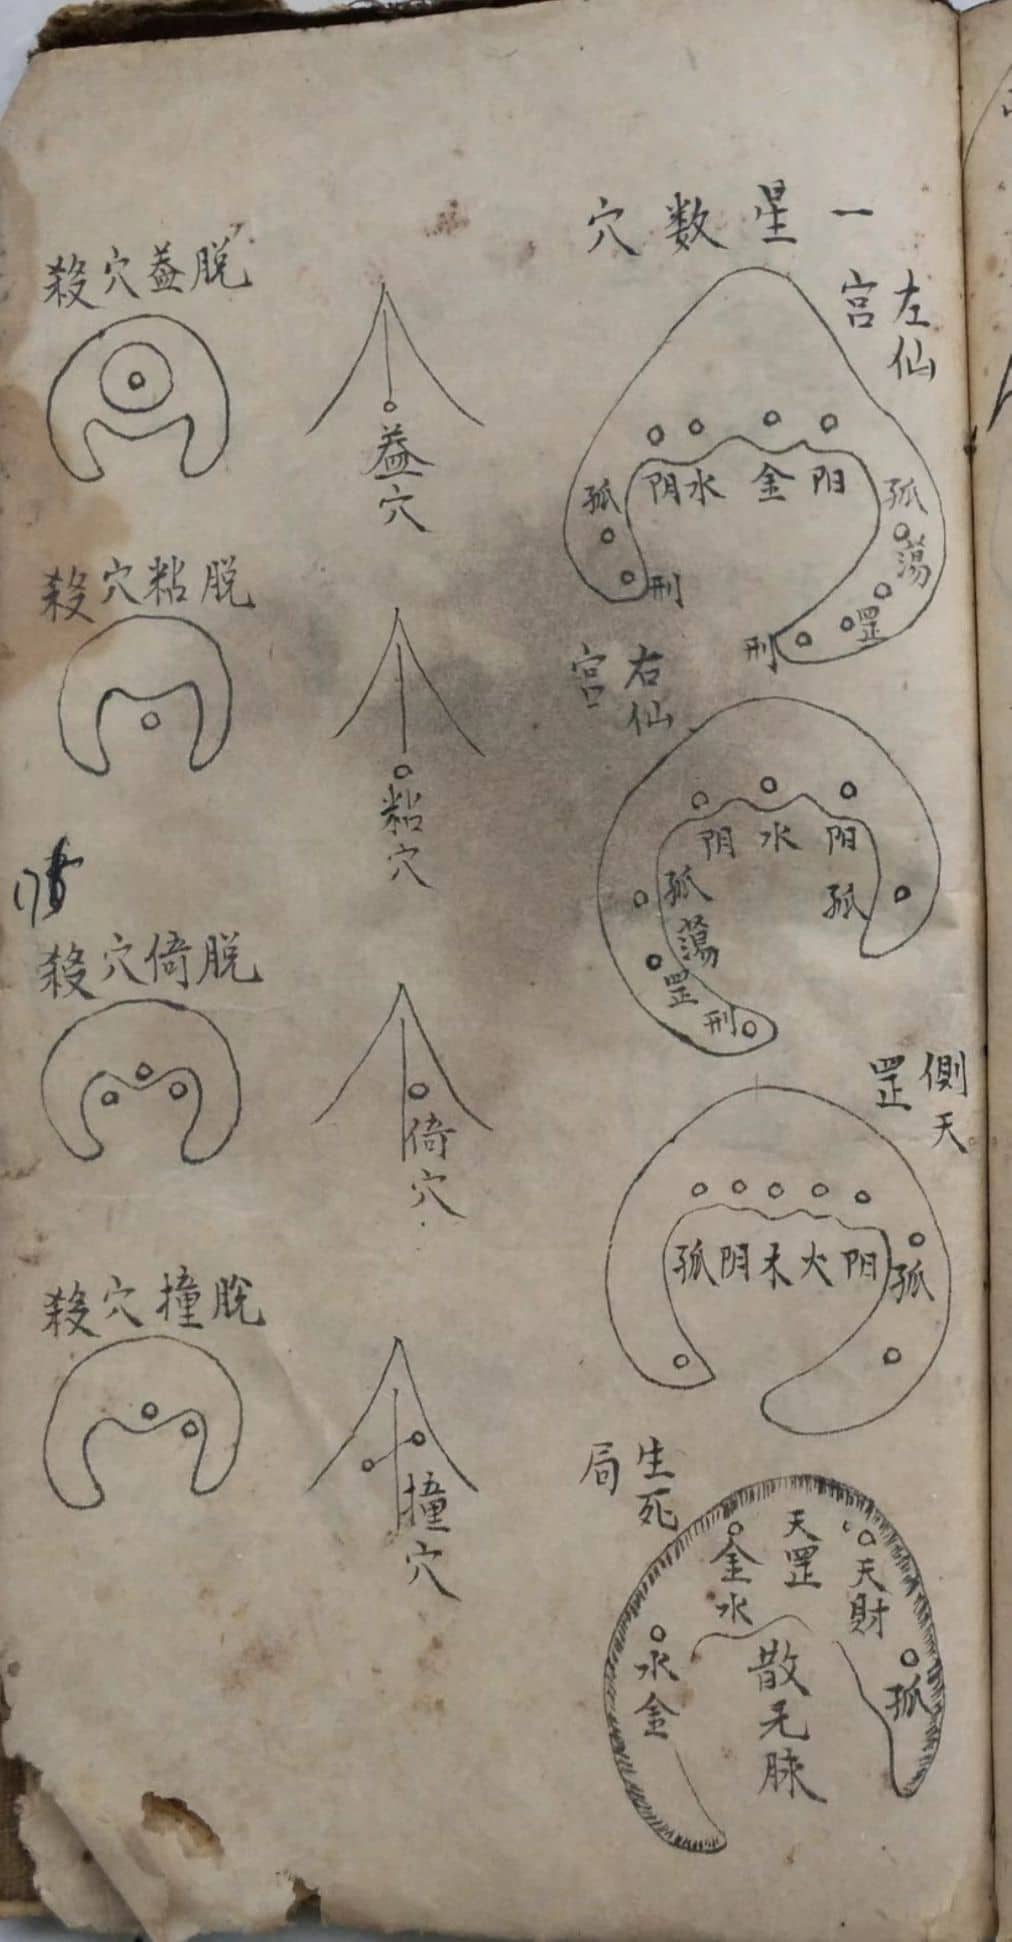 一星数穴
左仙
宫
孤 阴 水 金 阳 孤
蕩
罡
刑
刑
右仙
宫
阴 水 阳
孤
孤
蕩
罡
刑
側天
罡
孤 阴 木 火 阳 孤
生死
局
天罡
天財
金水
水金
孤
散无脉
蓋穴
粘穴
倚穴
撞穴
脱蓋穴殺
脱粘穴殺
脱倚穴殺
脱撞穴殺